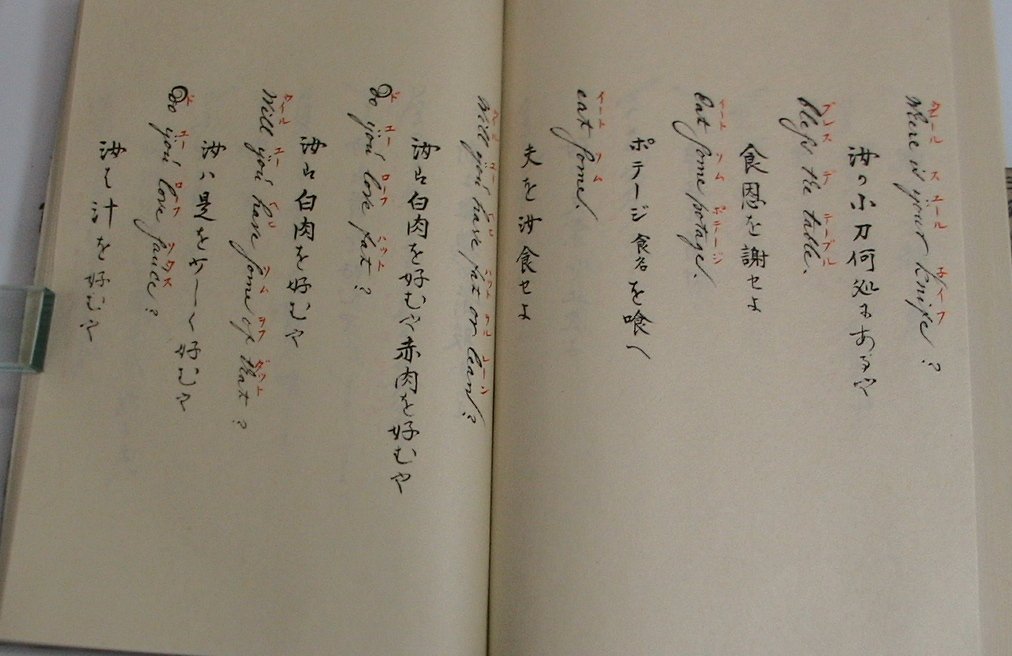 ス エール ナイフ
Where is your knife?
汝の小刀何処にあるや
ブレス デ テーブル
Bleſs the table.
食恩を謝セよ
イート ソム ポテージ
Eat ſome potage.
ポテージ食名を喰へ
イート ソム
eat ſome.
夫を汝食セよ
ユー ヘット ヲル レーン
Will you have fat or lean?
汝は白肉を好むや赤肉を好むや
ド ユー ロフ ハット
Do you love fat?
汝は白肉を好むや
ウイル ユー ソム ヲフ ダット
Will you have ſome of that?
汝ハ是を少しく好むや
ド ユー ロフ ソウス
Do you love ſauce?
汝は汁を好むや